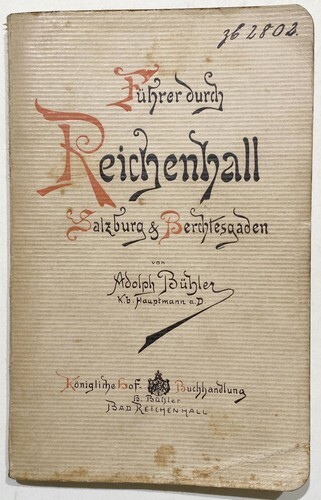 zb 2802.
Führer durch
Reichenhall
Salzburg & Berchtesgaden
von
Adolph Bühler
K.b. Hauptmann a.D
Königliche Hof- Buchhandlung
B. Bühler
BAD REICHENHALL